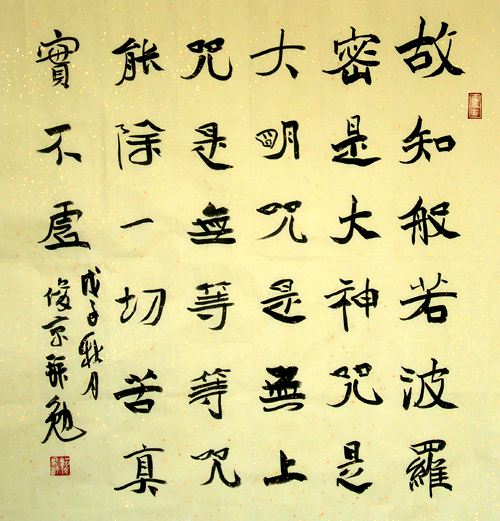 故知般若波羅
密是大神咒是
大明咒是無上
咒是無等等咒
能除一切苦真
實不虛
戊子秋月